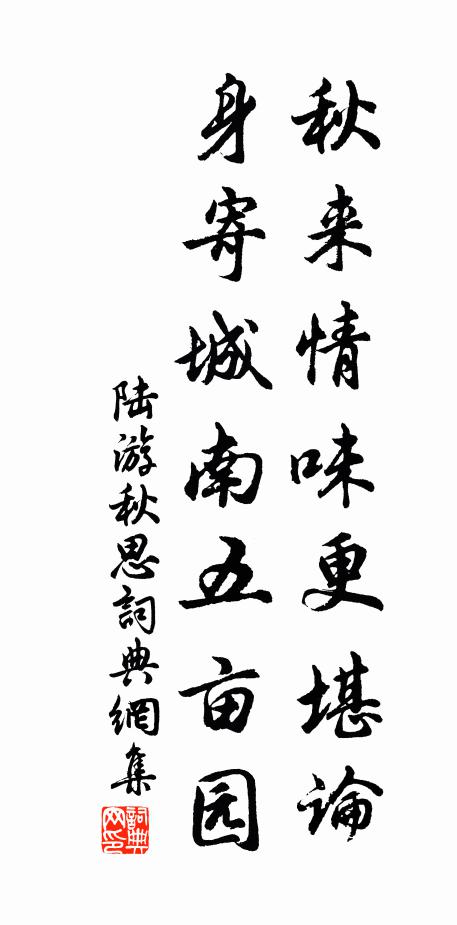 秋来情味更堪論
身寄城南五亩园
陆游秋思詞典網集
詞典网印